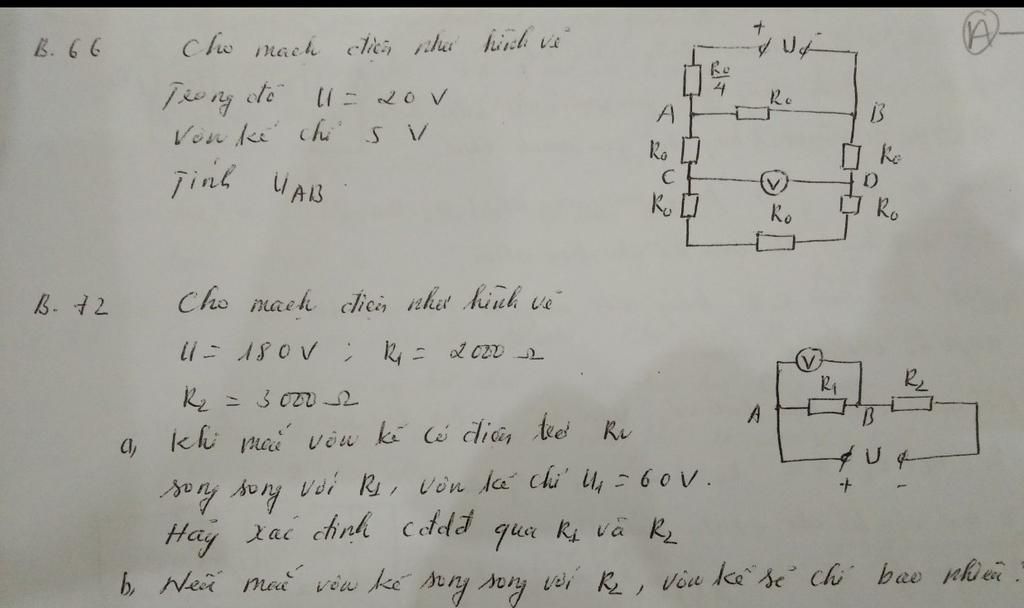 B. 66 Cho mạch điện như hình vẽ
Trong đó U = 20 V
Vôn kế chỉ 5 V
Tính U_AB
+ U -
R₀/4
A R₀ B
R₀ R₀
C V D
R₀ R₀ R₀
A
B. 72 Cho mạch điện như hình vẽ
U = 180 V ; R₁ = 2000 Ω
R₂ = 3000 Ω
a, Khi mắc vôn kế có điện trở Rv
song song với R₁, vôn kế chỉ U₁ = 60 V.
Hãy xác định cđdđ qua R₁ và R₂
b, Nếu mắc vôn kế song song với R₂, vôn kế sẽ chỉ bao nhiêu ?
V
R₁ R₂
A B
U
+ -